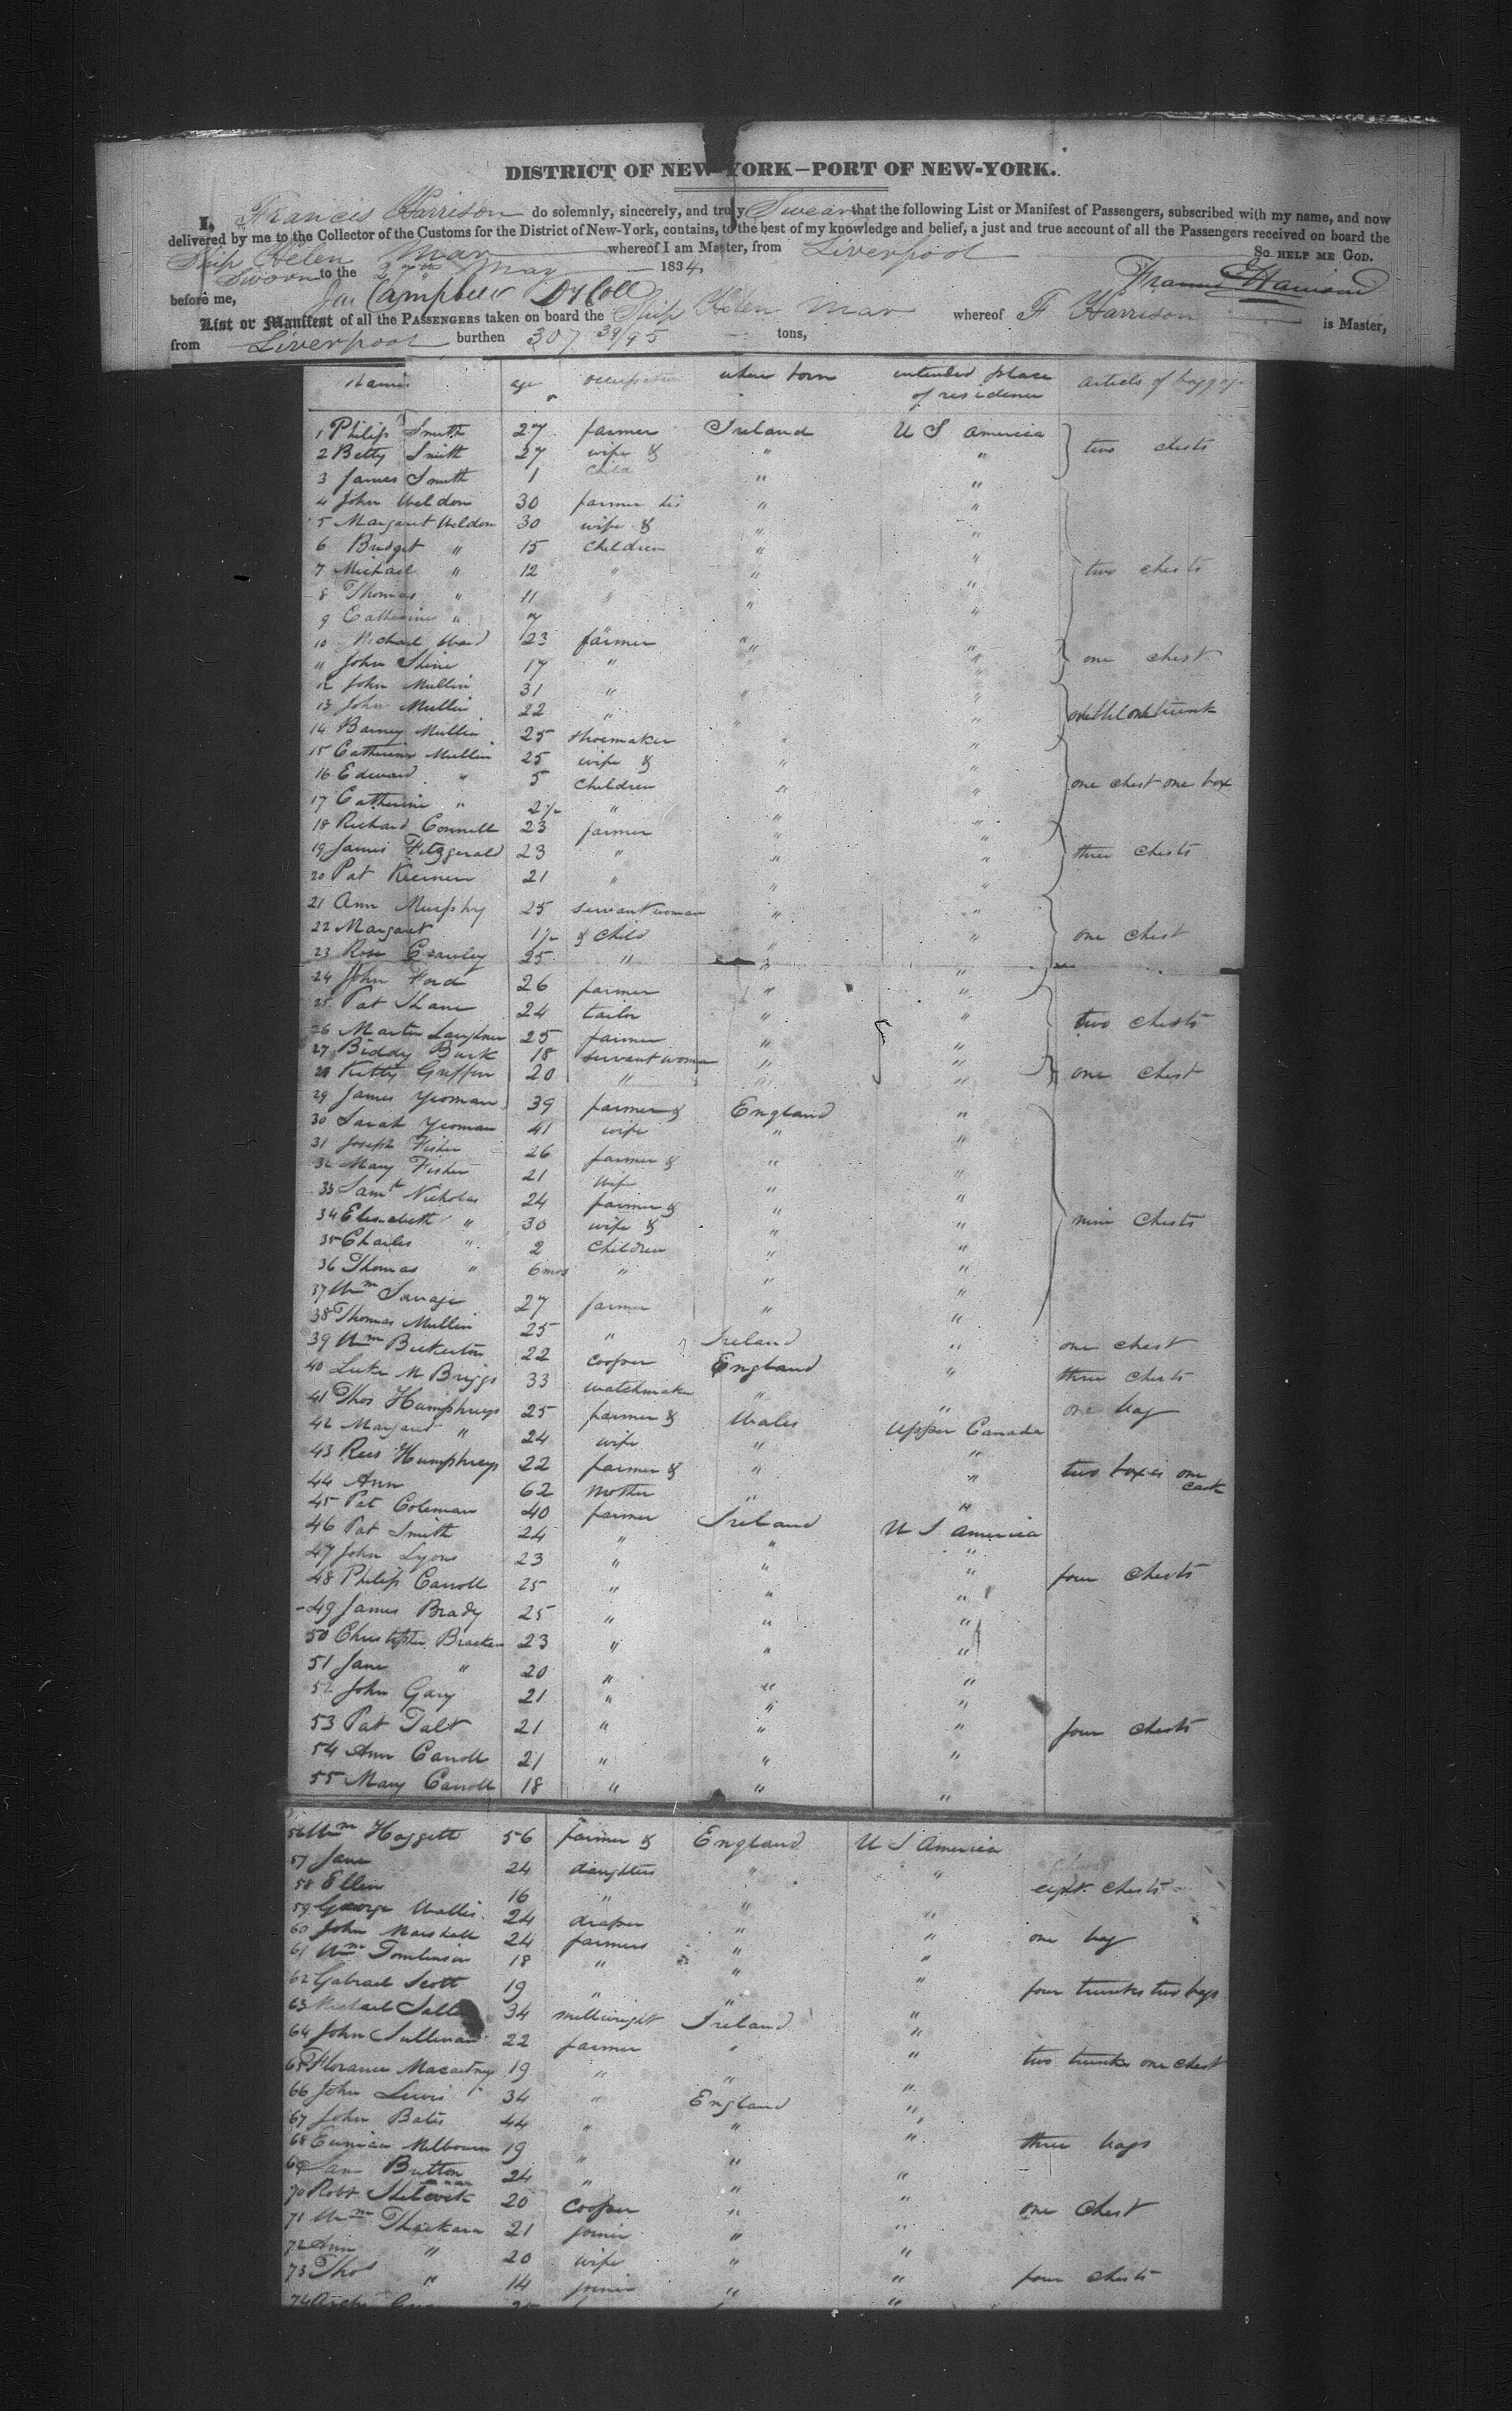 DISTRICT OF NEW-YORK—PORT OF NEW-YORK.
I, Francis Harrison do solemnly, sincerely, and truly Swear that the following List or Manifest of Passengers, subscribed with my name, and now
delivered by me to the Collector of the Customs for the District of New-York, contains, to the best of my knowledge and belief, a just and true account of all the Passengers received on board the
Ship Helen Mar whereof I am Master, from Liverpool
So HELP ME GOD.
Sworn to the 27th May 1834.
Francis Harrison
before me, Campbell Dy Coll
List or Manifest of all the PASSENGERS taken on board the Ship Helen Mar whereof F Harrison is Master,
from Liverpool burthen 307 39/95 tons,
Names age occupation where born intended place of residence articles of baggage
1 Philip Smith 27 farmer Ireland U S America
2 Betty Smith 27 wife & " " two chests
3 James Smith 1 child " "
4 John Weldon 30 farmer his " "
5 Margaret Weldon 30 wife & " "
6 Bridget " 15 children " "
7 Michael " 12 " " " two chests
8 Thomas " 11 " " "
9 Catherine " 7
10 Michael Ward 23 farmer " "
11 John Shine 17 " " " one chest
12 John Mullin 31 " " "
13 John Mullin 22 " " " trunk
14 Barney Mullin 25 shoemaker " "
15 Catherine Mullin 25 wife & " "
16 Edward " 5 children " " one chest one box
17 Catherine " 2 " " "
18 Richard Connell 23 farmer " "
19 James Fitzgerald 23 " " " three chests
20 Pat Kiernan 21 " " "
21 Ann Murphy 25 servant woman " "
22 Margaret 1 & child " " one chest
23 Rose Crawley 25 " " "
24 John Ford 26 farmer " "
25 Pat Shane 24 tailor " " two chests
26 Martin 25 farmer " "
27 Biddy Burk 18 servant woman " "
28 Kitty Griffin 20 " " " one chest
29 James Yeoman 39 farmer & England "
30 Sarah Yeoman 41 wife " "
31 Joseph Fisher 26 farmer & " "
32 Mary Fisher 21 wife " "
33 Saml Nicholas 24 farmer & " "
34 Elizabeth " 30 wife & " " nine chests
35 Charles " 2 children " "
36 Thomas " 6 mos " " "
37 Wm Savage 27 farmer " "
38 Thomas Mullin 25 " Ireland " one chest
39 Wm Bickerton 22 cooper England " three chests
40 Luke M Briggs 33 watchmaker " " one bag
41 Thos Humphreys 25 farmer & Wales Upper Canada
42 Margaret " 24 wife " "
43 Rees Humphreys 22 farmer & " " two boxes one cask
44 Ann 62 mother " "
45 Pat Coleman 40 farmer Ireland U S America
46 Pat Smith 24 " " "
47 John Lyons 23 " " " four chests
48 Philip Carroll 25 " " "
49 James Brady 25 " " "
50 Christopher Bracken 23 " " "
51 Jane " 20 " " "
52 John Gary 21 " " "
53 Pat Talt 21 " " " four chests
54 Ann Carroll 21 " " "
55 Mary Carroll 18 " " "
56 Wm Hoggett 56 farmer & England U S America
57 Jane 24 daughters " "
58 Ellen 16 " " " eight chests
59 George Wallis 24 draper " "
60 John Marshall 24 farmers " " one bag
61 Wm Tomlinson 18 " " "
62 Gabriel Scott 19 " " " four trunks two bags
63 Michael 34 millwright Ireland "
64 John Sullivan 22 farmer " "
65 Florance Macartney 19 " " " two trunks one chest
66 John Lewis 34 " England "
67 John Bates 44 " " "
68 Milbourn 19 " " " three bags
69 Britton 24 " " "
70 Robt 20 cooper " " one chest
71 Wm 21 joiner " "
72 Ann " 20 wife " "
73 Thos " 14 joiner " " four chests
74